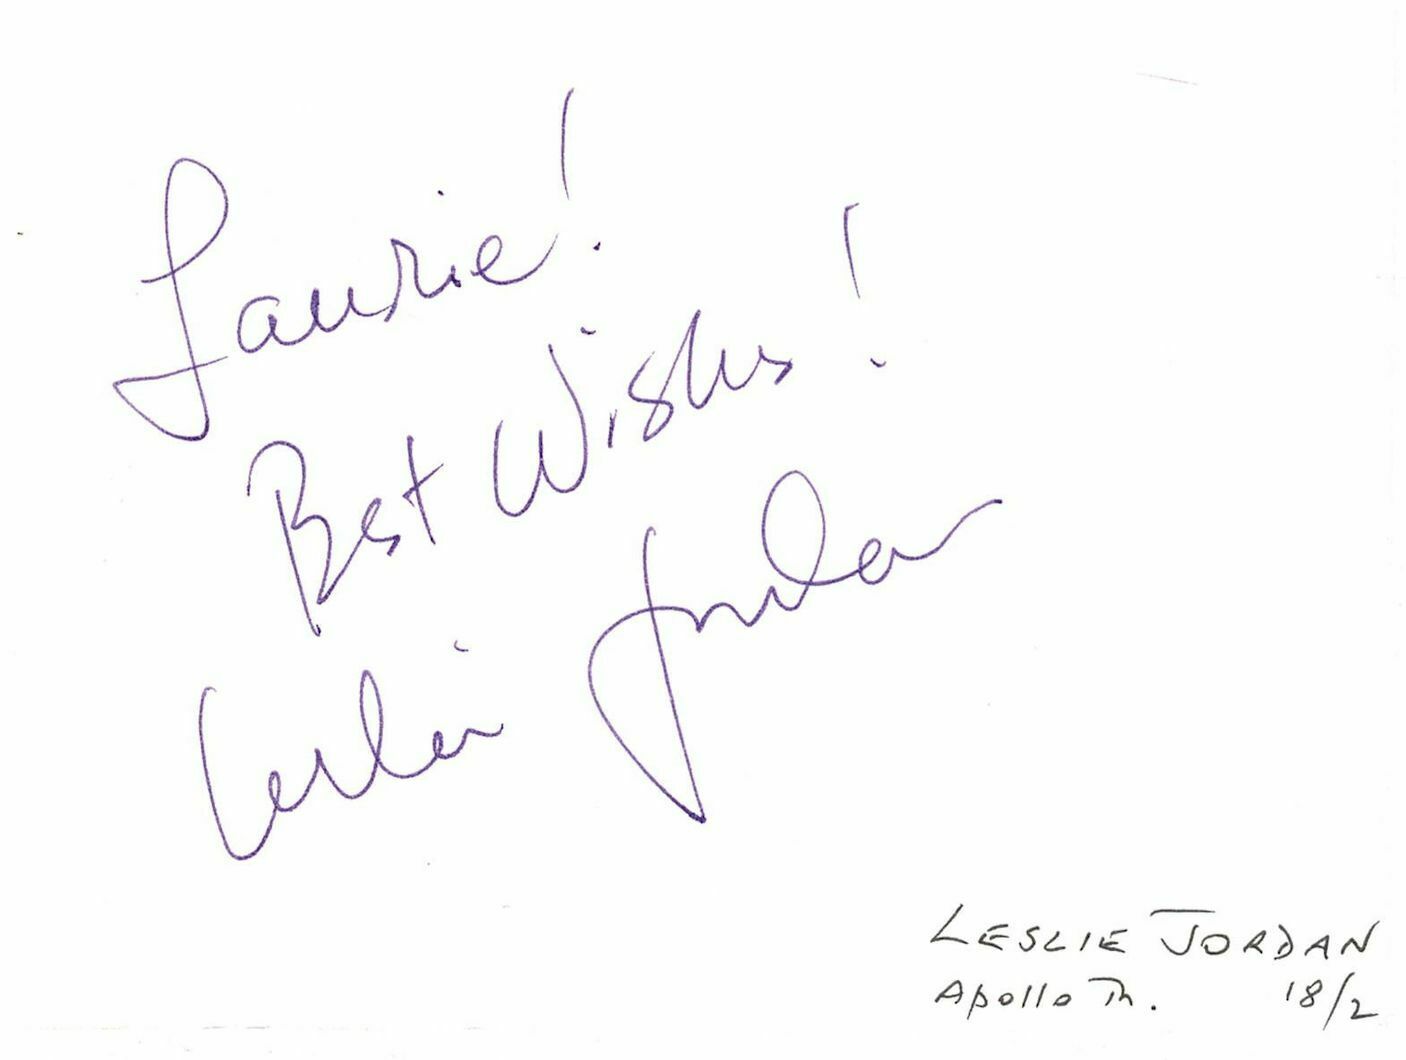 Laurie!
Best Wishes!
Leslie Jordan
LESLIE JORDAN
Apollo Th. 18/2